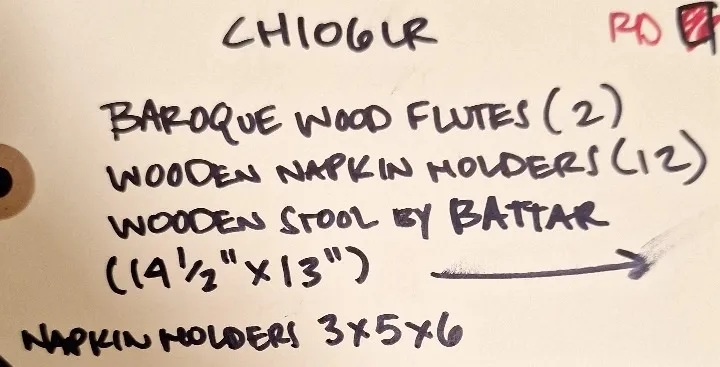 CH106LR RD
BAROQUE WOOD FLUTES (2)
WOODEN NAPKIN HOLDERS (12)
WOODEN STOOL BY BATTAR
(14 1/2" X 13")
NAPKIN HOLDERS 3X5X6